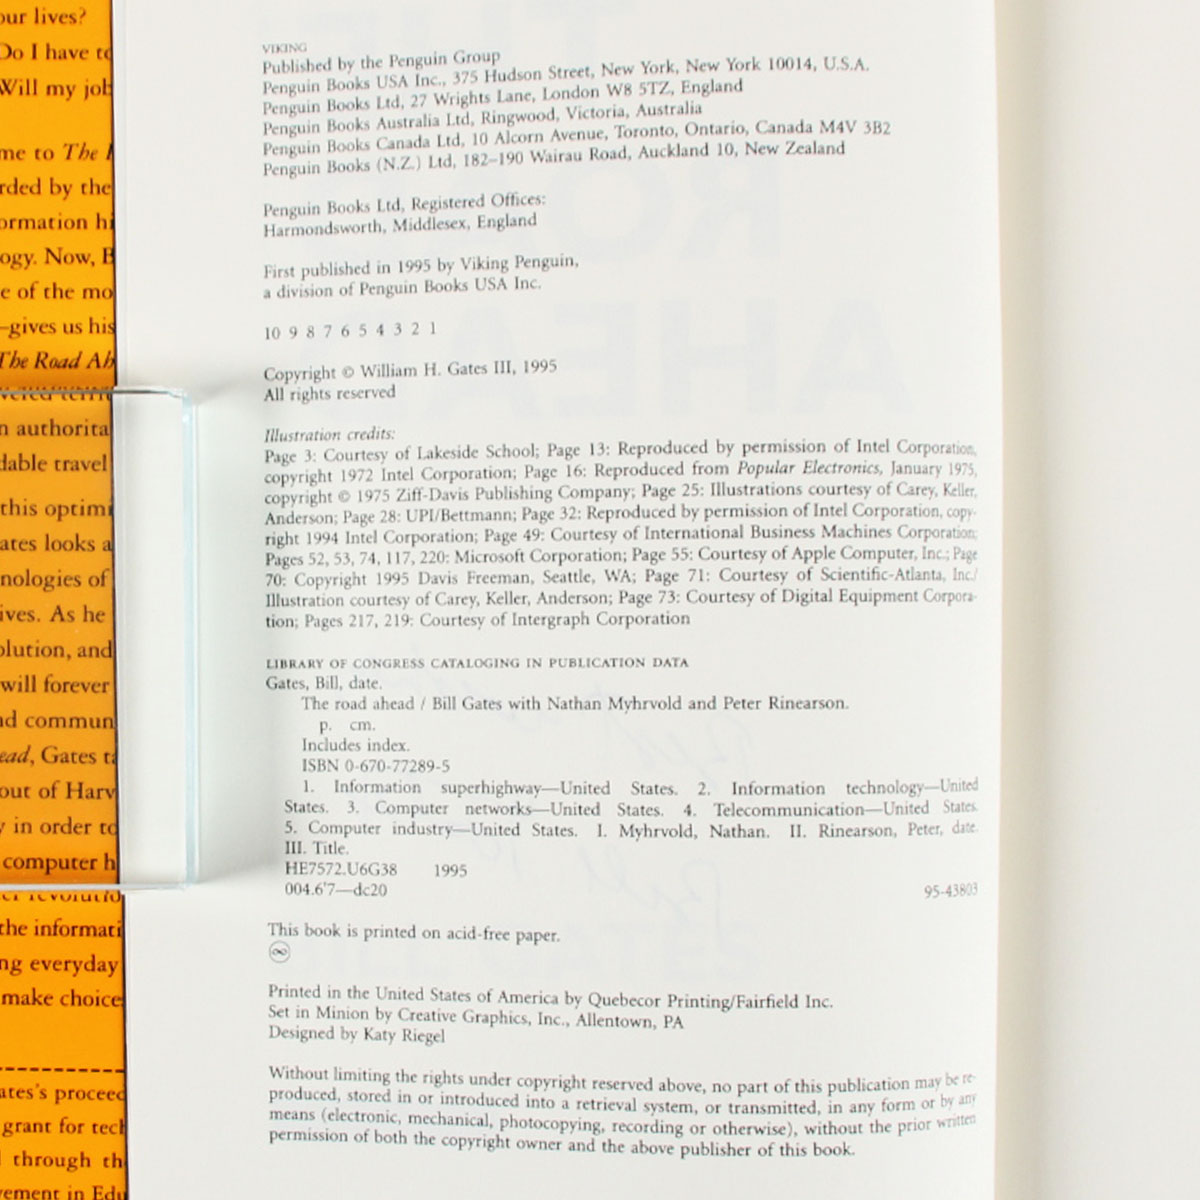 our lives?
Do I have to
Will my job
me to The
rded by the
ormation hi
ogy. Now, B
e of the mo
—gives us his
The Road Ah
n authorita
dable travel
this optimi
ates looks a
nologies of
ives. As he
olution, and
will forever
nd commun
ead, Gates ta
out of Harv
y in order to
computer h
er revolutio
the informati
ng everyday
make choice
ates's proceed
grant for tech
through th
vement in Edu
VIKING
Published by the Penguin Group
Penguin Books USA Inc., 375 Hudson Street, New York, New York 10014, U.S.A.
Penguin Books Ltd, 27 Wrights Lane, London W8 5TZ, England
Penguin Books Australia Ltd, Ringwood, Victoria, Australia
Penguin Books Canada Ltd, 10 Alcorn Avenue, Toronto, Ontario, Canada M4V 3B2
Penguin Books (N.Z.) Ltd, 182–190 Wairau Road, Auckland 10, New Zealand
Penguin Books Ltd, Registered Offices:
Harmondsworth, Middlesex, England
First published in 1995 by Viking Penguin,
a division of Penguin Books USA Inc.
10 9 8 7 6 5 4 3 2 1
Copyright © William H. Gates III, 1995
All rights reserved
Illustration credits:
Page 3: Courtesy of Lakeside School; Page 13: Reproduced by permission of Intel Corporation,
copyright 1972 Intel Corporation; Page 16: Reproduced from Popular Electronics, January 1975,
copyright © 1975 Ziff-Davis Publishing Company; Page 25: Illustrations courtesy of Carey, Keller,
Anderson; Page 28: UPI/Bettmann; Page 32: Reproduced by permission of Intel Corporation, copy-
right 1994 Intel Corporation; Page 49: Courtesy of International Business Machines Corporation;
Pages 52, 53, 74, 117, 220: Microsoft Corporation; Page 55: Courtesy of Apple Computer, Inc.; Page
70: Copyright 1995 Davis Freeman, Seattle, WA; Page 71: Courtesy of Scientific-Atlanta, Inc./
Illustration courtesy of Carey, Keller, Anderson; Page 73: Courtesy of Digital Equipment Corpora-
tion; Pages 217, 219: Courtesy of Intergraph Corporation
LIBRARY OF CONGRESS CATALOGING IN PUBLICATION DATA
Gates, Bill, date.
The road ahead / Bill Gates with Nathan Myhrvold and Peter Rinearson.
p. cm.
Includes index.
ISBN 0-670-77289-5
1. Information superhighway—United States. 2. Information technology—United
States. 3. Computer networks—United States. 4. Telecommunication—United States.
5. Computer industry—United States. I. Myhrvold, Nathan. II. Rinearson, Peter, date.
III. Title.
HE7572.U6G38 1995
004.6'7—dc20 95-43803
This book is printed on acid-free paper.
Printed in the United States of America by Quebecor Printing/Fairfield Inc.
Set in Minion by Creative Graphics, Inc., Allentown, PA
Designed by Katy Riegel
Without limiting the rights under copyright reserved above, no part of this publication may be re-
produced, stored in or introduced into a retrieval system, or transmitted, in any form or by any
means (electronic, mechanical, photocopying, recording or otherwise), without the prior written
permission of both the copyright owner and the above publisher of this book.